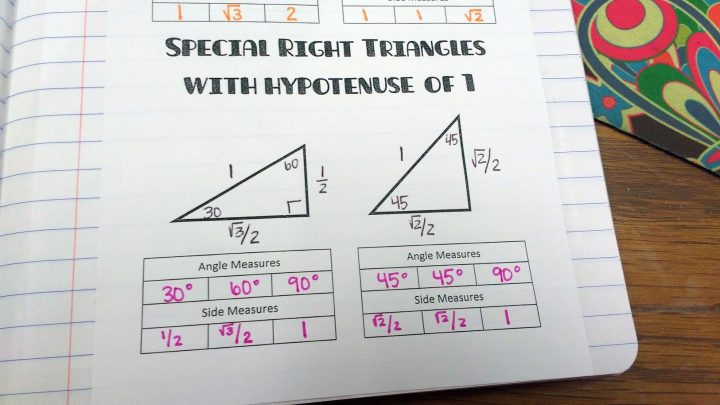 1 √3 2
1 1 √2
SPECIAL RIGHT TRIANGLES
WITH HYPOTENUSE OF 1
1
60
1/2
30
√3/2
1
45
√2/2
45
√2/2
Angle Measures
30° 60° 90°
Side Measures
1/2 √3/2 1
Angle Measures
45° 45° 90°
Side Measures
√2/2 √2/2 1